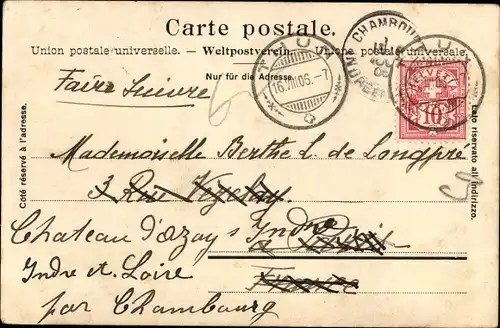 Carte postale.
Union postale universelle. - Weltpostverein. - Unione postale universale.
Nur für die Adresse.
Côté réservé à l'adresse.
Lato riservato all'indirizzo.
Faire Suivre
16.VIII.05.-7
CHAMBOU
INDRE-ET-
HELVETIA
10
Mademoiselle Berthe L. de Longpré
3 Rue
Chateau d'Azay s/Indre
Indre et Loire
par Chambourg